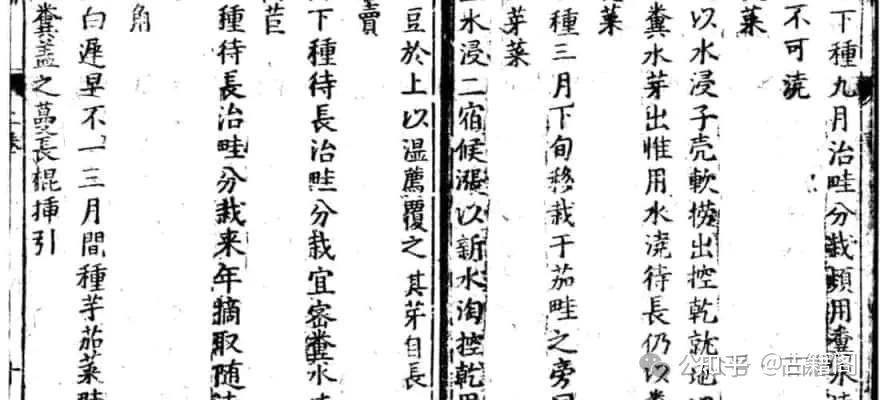 下種九月治畦分栽頻用糞水
不可澆
菜
以水浸子壳軟撈出控乾就地
糞水芽出惟用水澆待長仍以糞
菜
種三月下旬移栽于茄畦之旁同
芽菜
水浸二宿候漲以新水淘控乾用
豆於上以湿薦覆之其芽自長
賣
下種待長治畦分栽宜密糞水
苣
種待長治畦分栽来年摘取随
角
白遲早不一三月間種芋茄菜畦
糞盖之蔓長棍挿引
二卷
知乎 @古籍阁